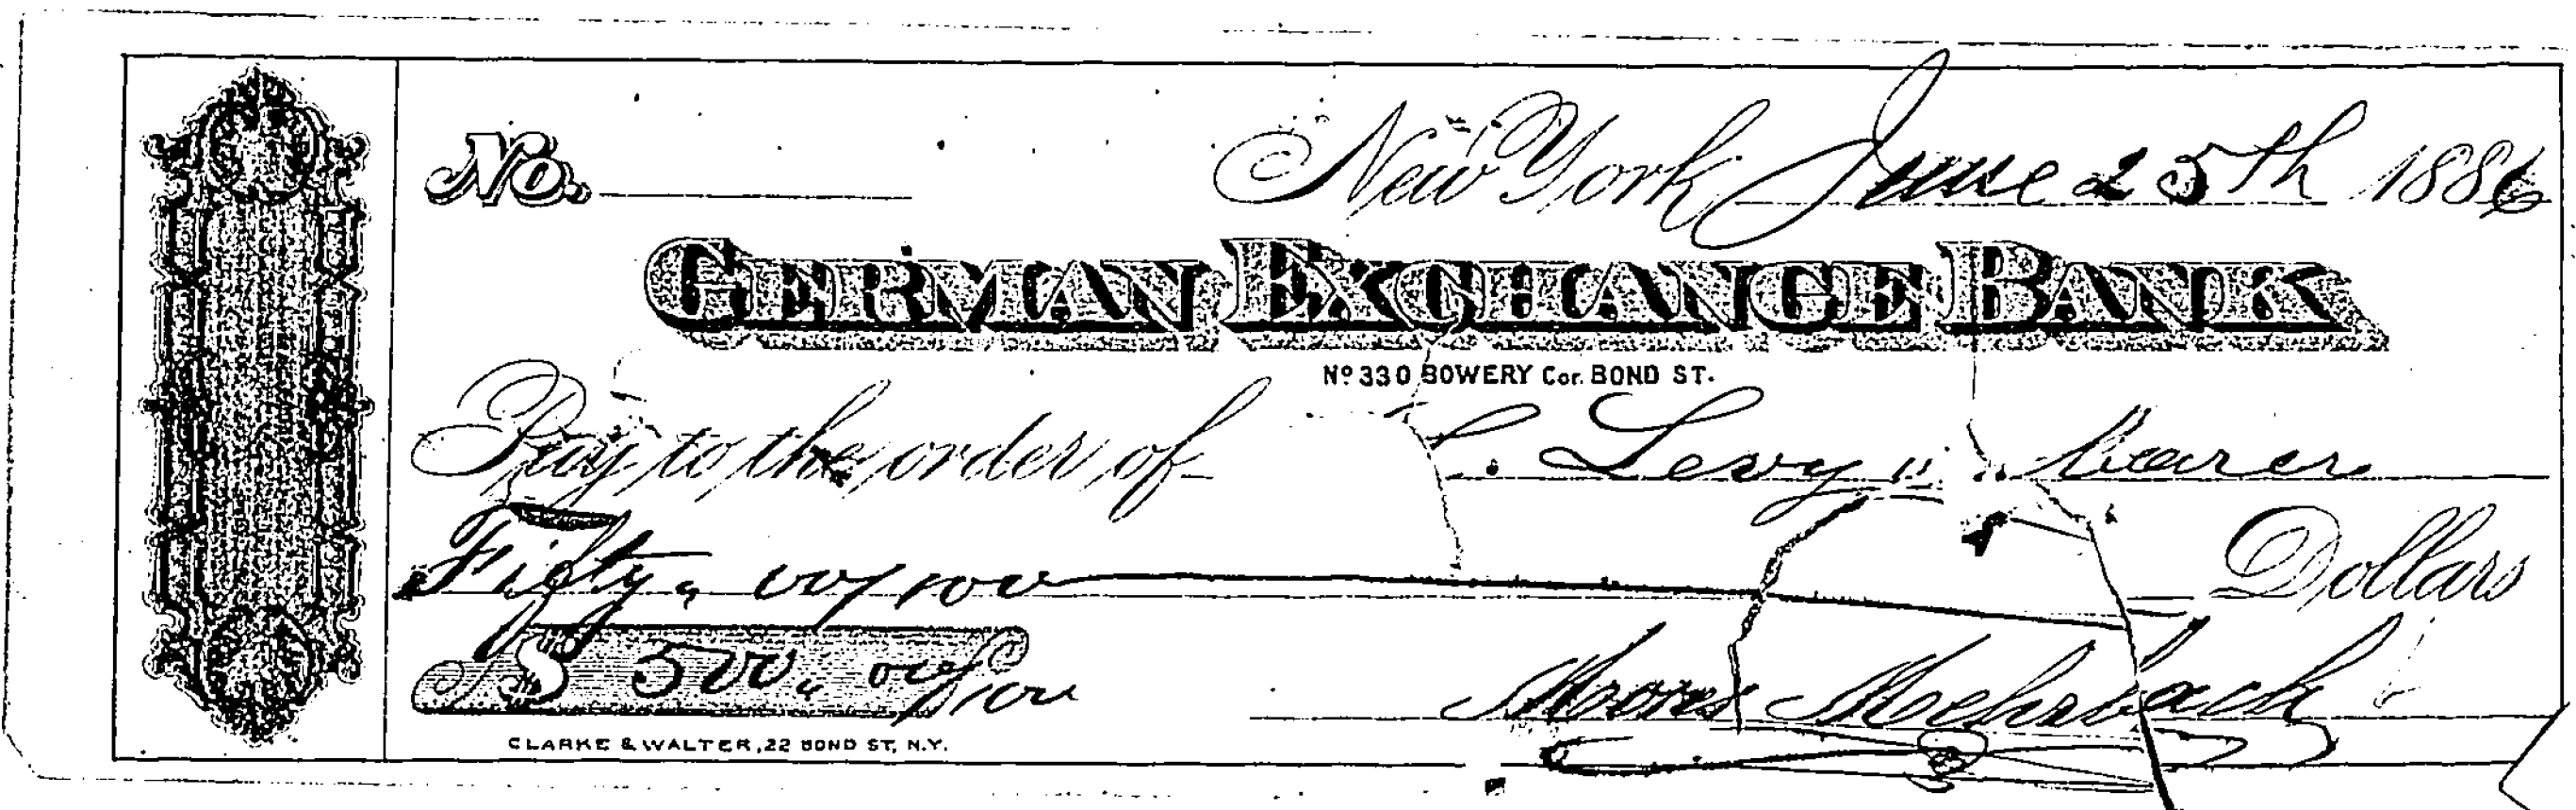 No. New York June 25th 1886
GERMAN EXCHANGE BANK
Nº 330 BOWERY Cor. BOND ST.
Pay to the order of L. Levy bearer
Fifty, 00/100 Dollars
$ 50, 00/100 Moses Mehrbach
CLARKE & WALTER, 22 BOND ST, N.Y.